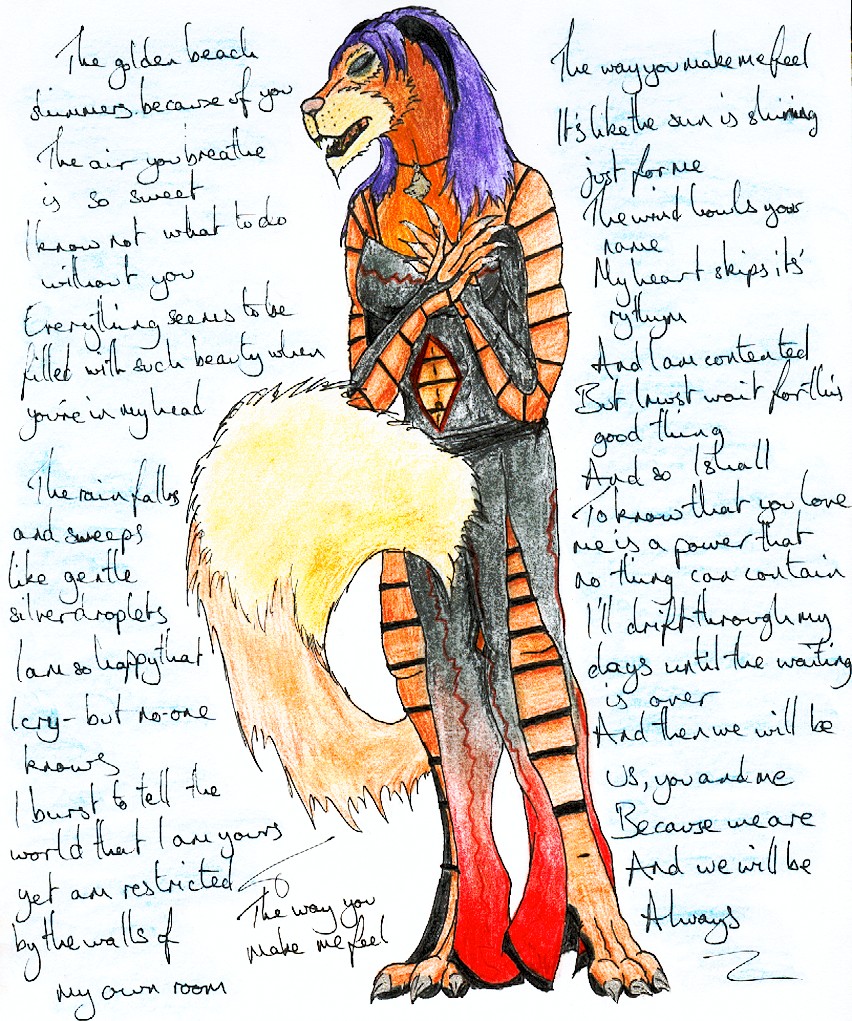 The golden beach
shimmers because of you
The air you breathe
is so sweet
I know not what to do
without you
Everything seems to be
filled with such beauty when
you're in my head
The rain falls
and sweeps
like gentle
silver droplets
I am so happy that
I cry - but no-one
knows
I burst to tell the
world that I am yours
yet am restricted
by the walls of
my own room
The way you
make me feel
The way you make me feel
It's like the sun is shining
just for me
The wind howls your
name
My heart skips its'
rythym
And I am contented
But I must wait for this
good thing
And so I shall
To know that you love
me is a power that
no thing can contain
I'll drift through my
days until the waiting
is over
And then we will be
us, you and me
Because we are
And we will be
Always